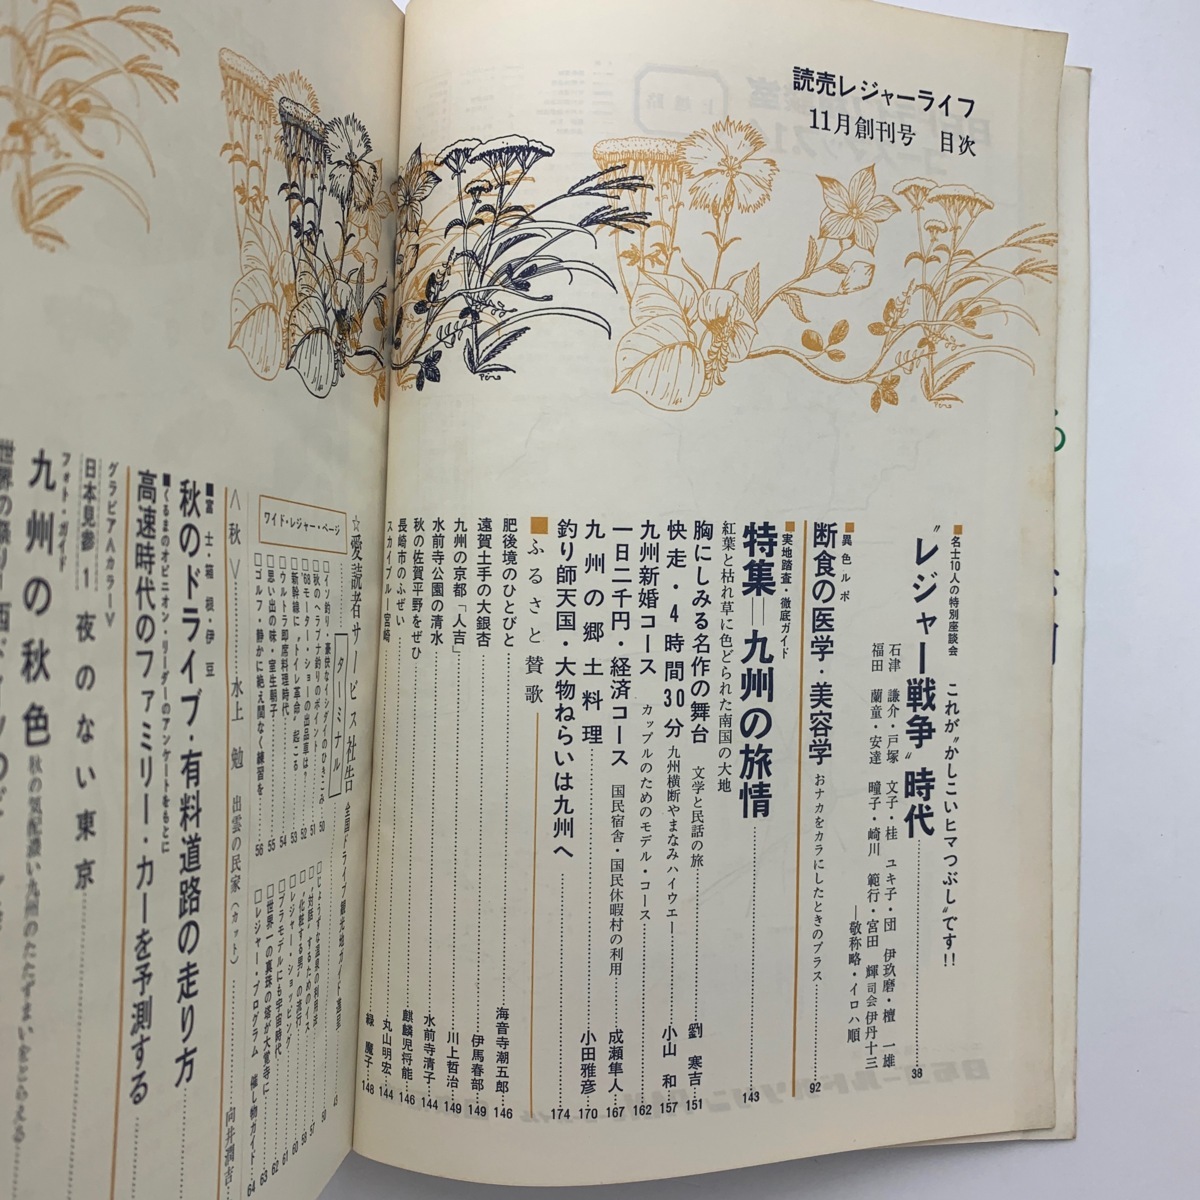 読売レジャーライフ
11月創刊号　目次
■名士10人の特別座談会　これが“かしこいヒマつぶし”です!!
“レジャー戦争”時代……38
石津　謙介・戸塚　文子・桂　ユキ子・団　伊玖磨・檀　一雄
福田　蘭童・安達　瞳子・崎川　範行・宮田　輝　司会 伊丹十三
―敬称略・イロハ順
■異色ルポ
断食の医学・美容学　おナカをカラにしたときのプラス……92
■実地踏査・徹底ガイド
特集＝九州の旅情……143
紅葉と枯れ草に色どられた南国の大地
胸にしみる名作の舞台　文学と民話の旅……劉　寒吉……151
快走・4時間30分　九州横断やまなみハイウエー……小山　和……157
九州新婚コース　カップルのためのモデル・コース……162
一日二千円・経済コース　国民宿舎・国民休暇村の利用……成瀬隼人……167
九州の郷土料理……小田雅彦……170
釣り師天国・大物ねらいは九州へ……174
■ふるさと賛歌
肥後境のひとびと……海音寺潮五郎……146
遠賀土手の大銀杏……伊馬春部……149
九州の京都「人吉」……川上哲治……149
水前寺公園の清水……水前寺清子……144
秋の佐賀平野をぜひ……麒麟児将能……146
長崎市のふぜい……丸山明宏……144
スカイブルー宮崎……緑　魔子……148
☆愛読者サービス社告
ターミナル　全国ドライブ観光地ガイド
ワイド・レジャー・ページ
□イシ釣り・豪快なイシダイのひきこみ……50
□秋のヘラブナ釣りのポイント……51
□'68モーター・ショーの出品車は?……52
□新幹線に“トイレ革命”起こる……53
□ウルトラ即席料理時代……54
□思い出の味・室生朝子……55
□ゴルフ・静かに絶え間なく練習を……56
□じょうずな温泉の利用法
□“対話”するためのイス
□“化粧する男”の流行
□レジャー・ショッピング……60
□プラモデルにも宇宙時代……61
□世界一の真珠の塔が大覚寺に……62
□レジャー・プログラム　催し物ガイド……64
〈秋〉……水上　勉　出雲の民家（カット）……向井潤吉
■富士・箱根・伊豆
秋のドライブ・有料道路の走り方
■くるまのオピニオン・リーダーのアンケートをもとに
高速時代のファミリー・カーを予測する
グラビア〈カラー〉
日本見参 1　夜のない東京
フォト・ガイド
九州の秋色　秋の気配濃い九州のたたずまいをとらえる
世界の祭り